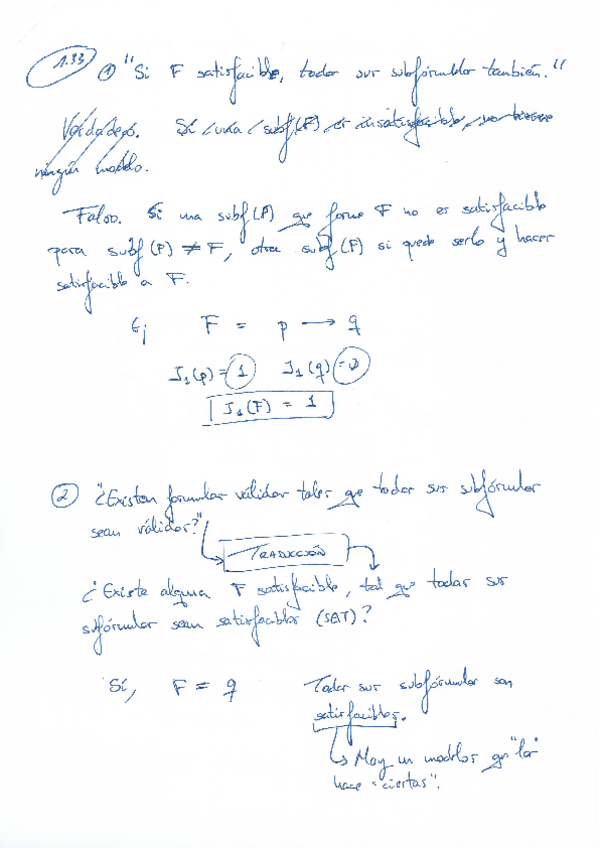 1.33
① "Si F satisfacible, todas sus subfórmulas también."
Verdadero. Si una subf(F) es insatisfacible, no tienen
ningún modelo.
Falso. Si una subf(F) que forme F no es satisfacible
para subf(F) ≠ F, otra subf(F) si puede serlo y hacer
satisfacible a F.
Ej F = p → q
I₁(p) = 1 I₁(q) = 0
I₁(F) = 1
② "¿Existen formulas válidas tales que todas sus subfórmulas
sean válidas?"
TRADUCCIÓN
¿Existe alguna F satisfacible, tal que todas sus
subfórmulas sean satisfacibles (SAT)?
Sí, F = q Todas sus subfórmulas son
satisfacibles.
↳ Hay un modelos que "la"
hace "ciertas".